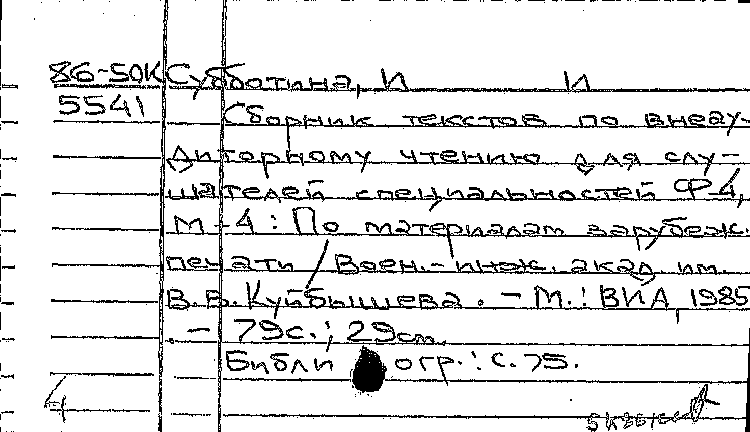 86-50К Субботина, И И
5541 Сборник текстов по внеау-
диторному чтению для слу-
шателей специальностей Ф-4,
М-4: По материалам зарубеж.
печати / Воен.-инж. акад. им.
В.В. Куйбышева. - М.: ВИА, 1985
. - 79с.; 29см.
Библи огр.: с.75.
4